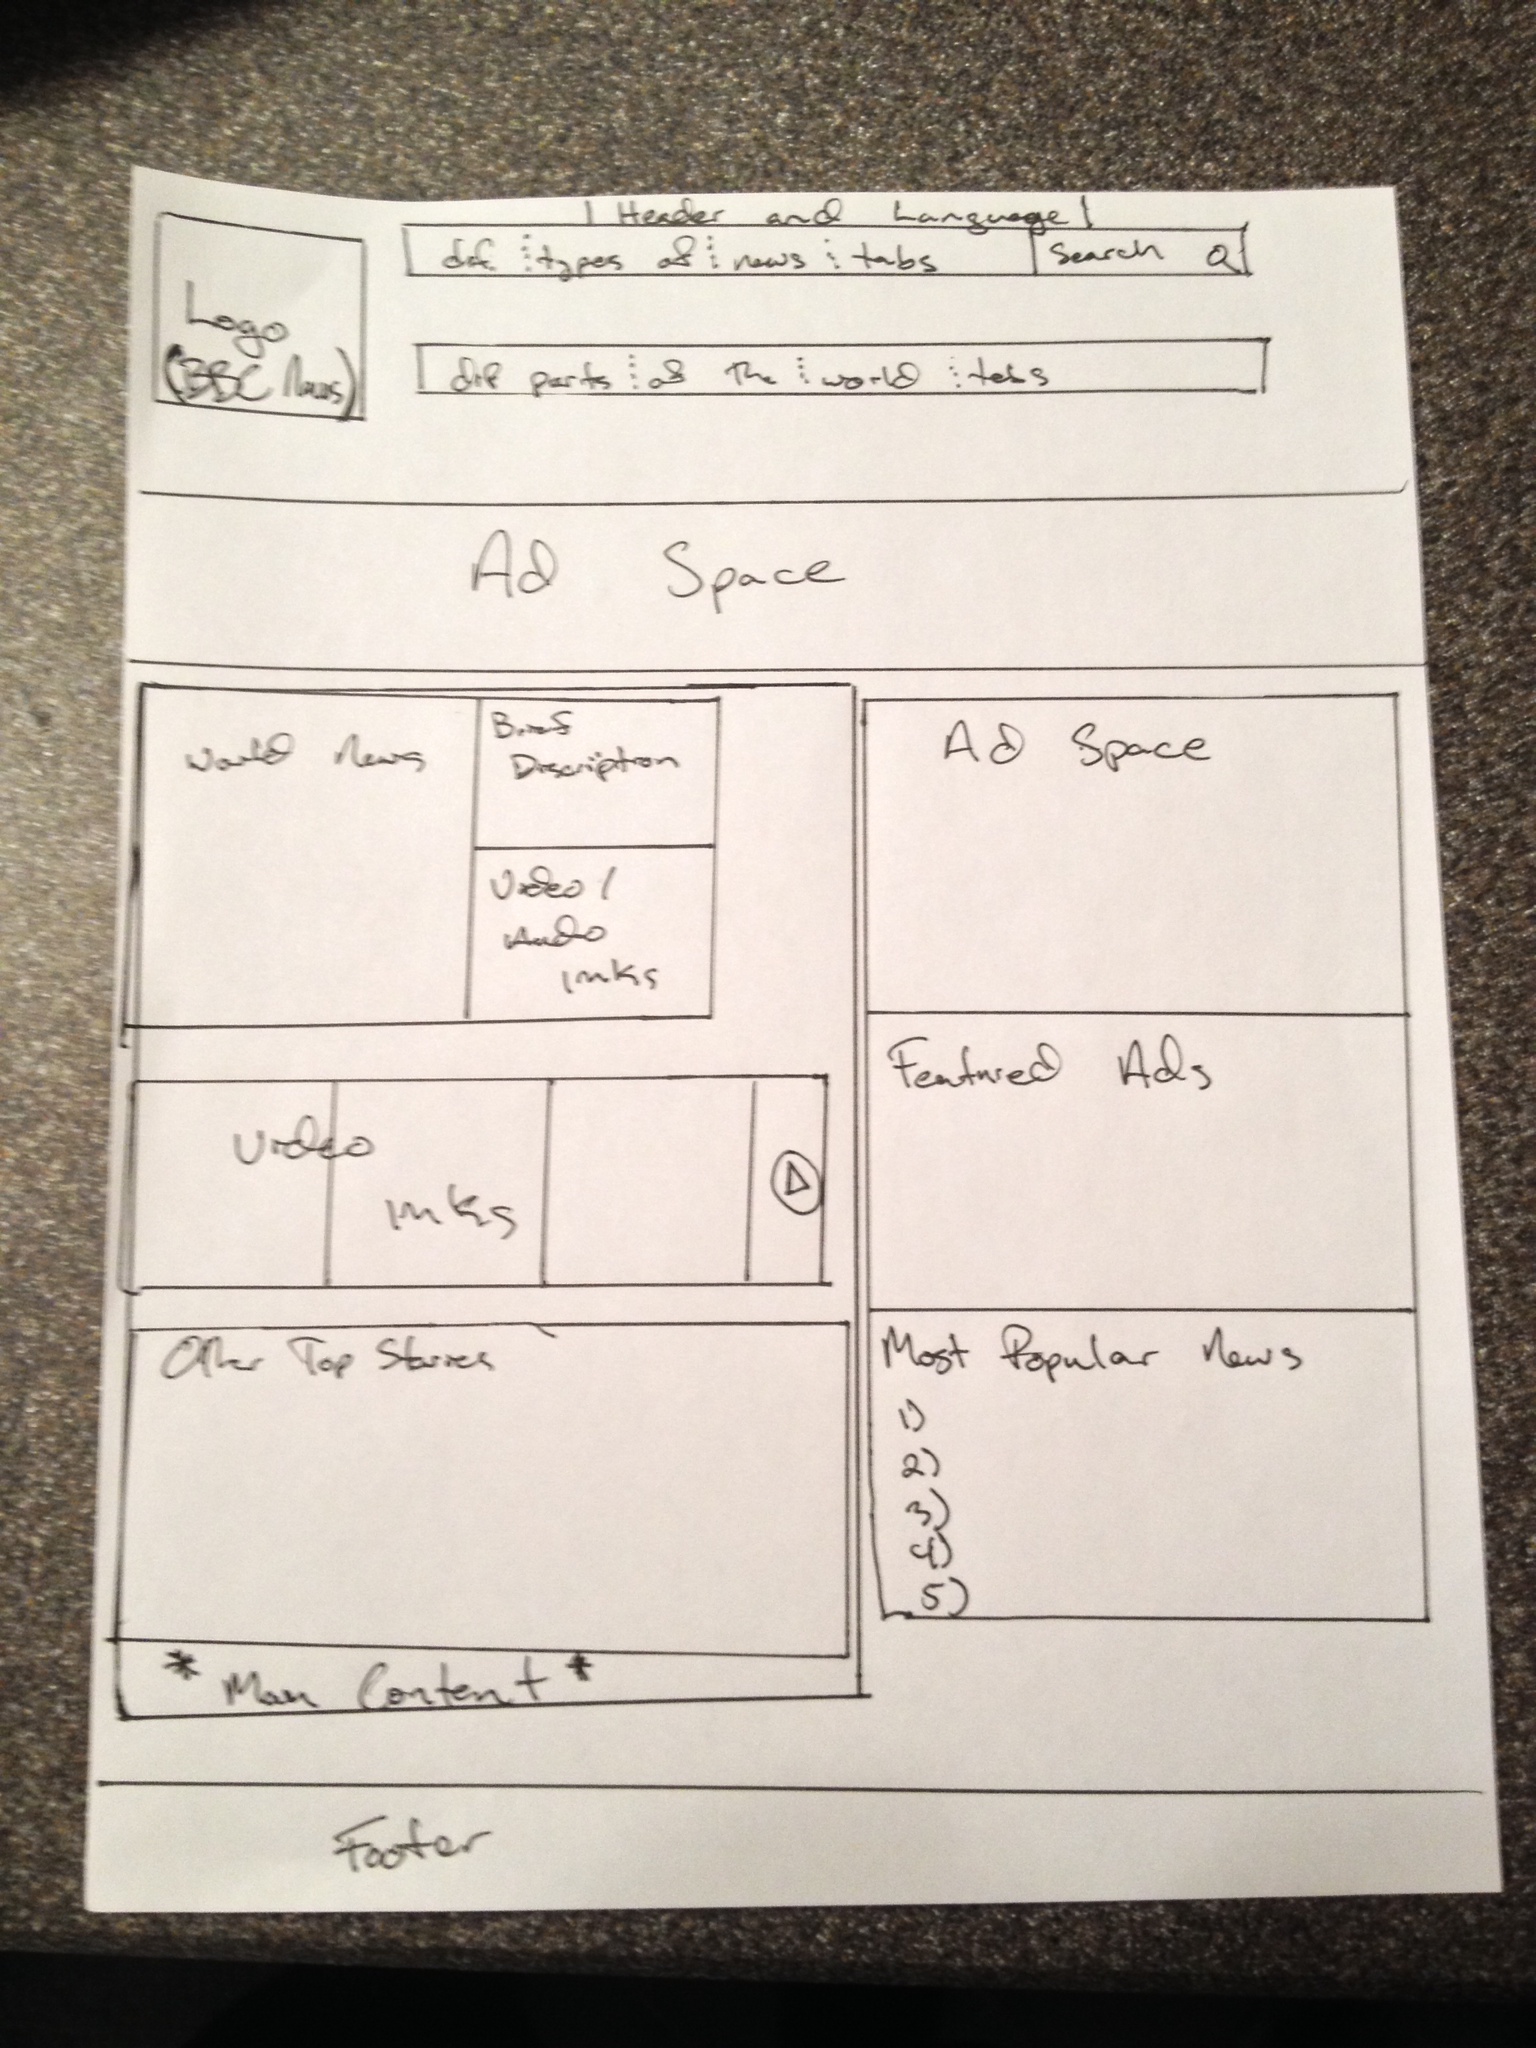 Header and Language
dif. types of news tabs
Search
Logo
(BBC News)
dif parts of the world tabs
Ad Space
World News
Brief
Discription
Video /
Audio
links
Video
links
Other Top Stories
* Main Content *
Ad Space
Featured Ads
Most Popular News
1)
2)
3)
4)
5)
Footer